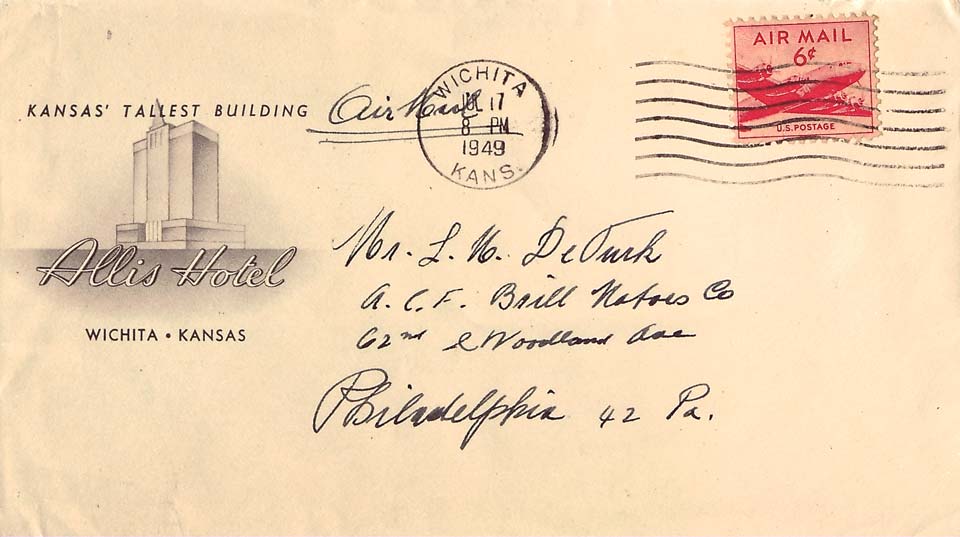 KANSAS' TALLEST BUILDING
Allis Hotel
WICHITA • KANSAS
Air Mail
WICHITA
JUL 17
8 PM
1949
KANS.
AIR MAIL
6¢
U.S. POSTAGE
Mr. L. H. DeTurk
A. C. F. Brill Motors Co
62nd & Woodland Ave
Philadelphia 42 Pa.